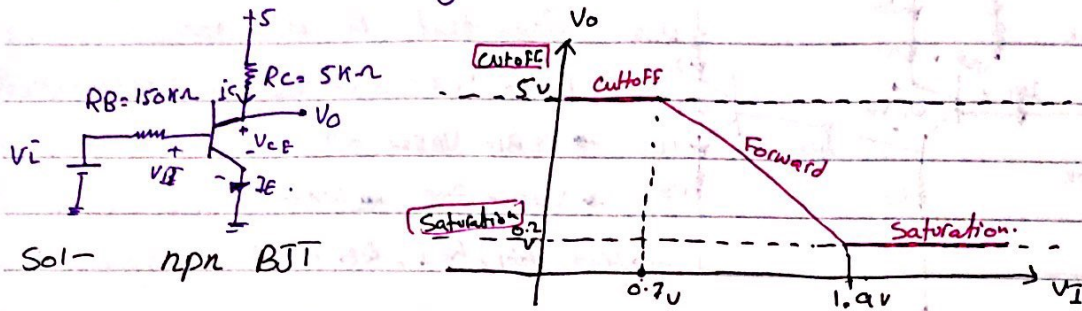 +5
RC= 5KΩ
ic
RB=150KΩ
Vo
+
VCE
-
Vi
+
VBE
-
IE.
Sol- npn BJT
Vo
cutoff
5v
cuttoff
Forward
Saturation
0.2
v
Saturation.
0.7v
1.9v
VI